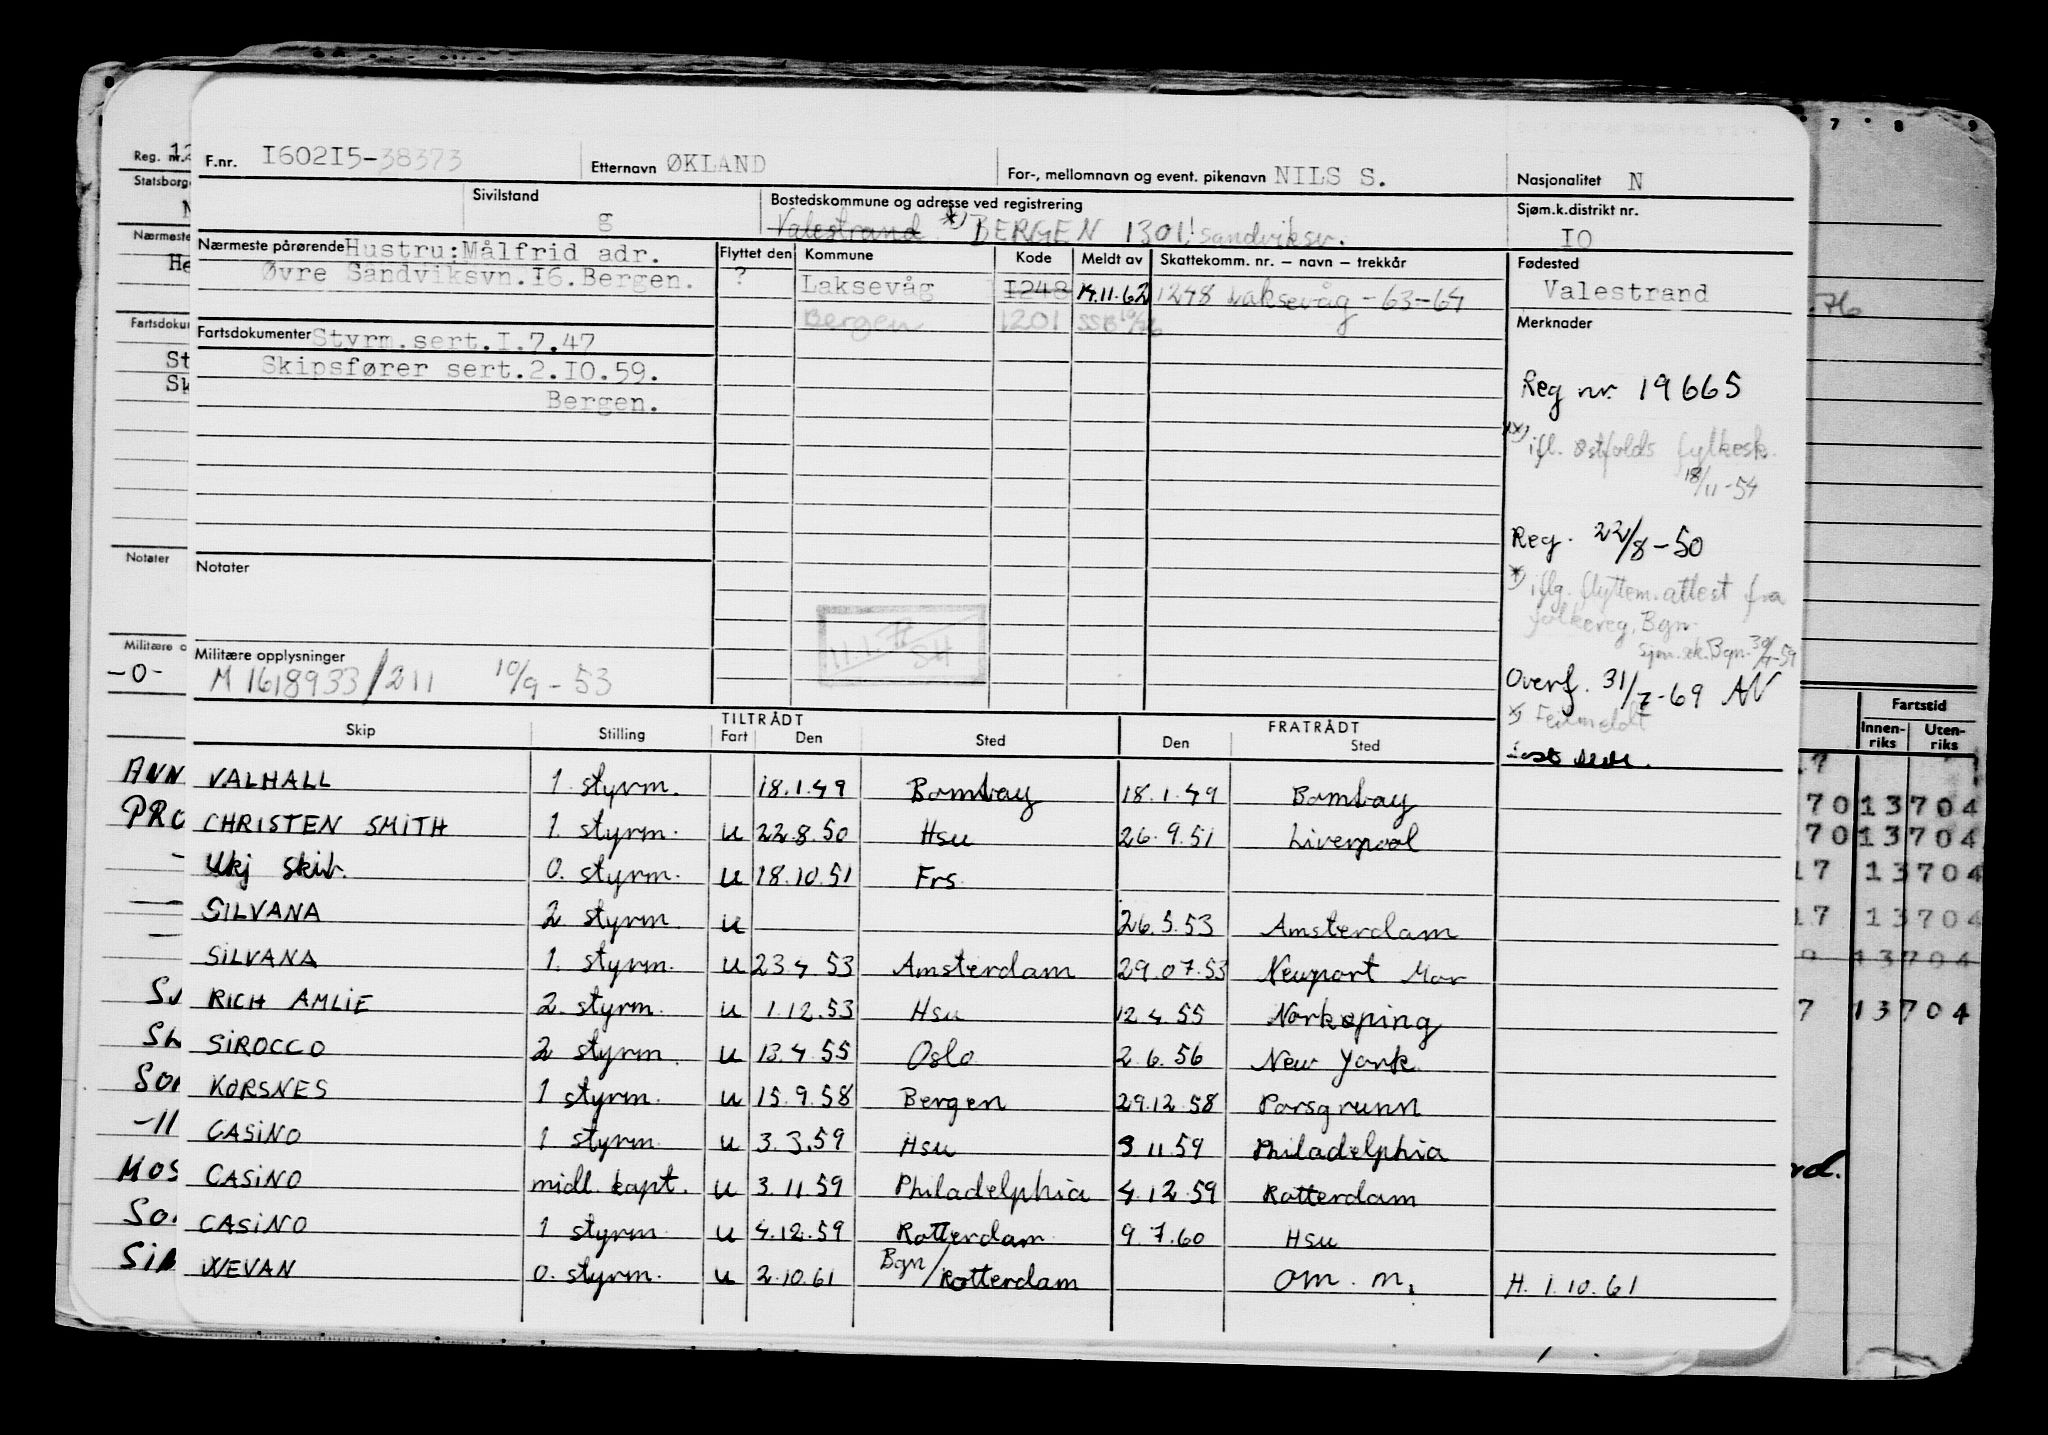 F.nr. I602I5-38373 Etternavn ØKLAND For-, mellomnavn og event. pikenavn NILS S. Nasjonalitet N
Sivilstand g Bostedskommune og adresse ved registrering Valestrand *) BERGEN 1301! Sandviksv. Sjøm.k.distrikt nr. IO
Nærmeste pårørende Hustru: Målfrid adr.
Øvre Sandviksvn.I6.Bergen.
Flyttet den Kommune Kode Meldt av Skattekomm. nr. – navn – trekkår
? Laksevåg I248 14.11.62 1248 Laksevåg -63-64
Bergen 1201 SSB
Fødested
Valestrand
Fartsdokumenter Styrm.sert.I.7.47
Skipsfører sert.2.IO.59.
Bergen.
Merknader
Reg nr. 19665
ifl. Østfolds fylkesk.
18/11-54
Reg. 22/8-50
*) iflg. flyttem.attest fra
folkereg, Bgn.
Overf. 31/7-69 AN
*) Feilmeldt
Notater
Militære opplysninger
M 1618933/211 10/9-53
TILTRÅDT FRATRÅDT
Skip Stilling Fart Den Sted Den Sted
VALHALL 1. styrm. 18.1.49 Bombay 18.1.49 Bombay
CHRISTEN SMITH 1. styrm. u 22.8.50 Hsu 26.9.51 Liverpool
Ukj skip. 0. styrm. u 18.10.51 Frs.
SILVANA 2 styrm. u 26.3.53 Amsterdam
SILVANA 1. styrm. u 23 4. 53 Amsterdam 29.07.53 Newport Mon
RICH AMLIE 2. styrm. u 1.12.53 Hsu 12.4.55 Norkøping
SIROCCO 2 styrm. u 13.4.55 Oslo 2.6.56 New York
KORSNES 1 styrm. u 15.9.58 Bergen 29.12.58 Porsgrunn
CASINO 1 styrm. u 3.3.59 Hsu 3 11.59 Philadelphia
CASINO midl. kapt. u 3.11.59 Philadelphia 4.12.59 Rotterdam
CASINO 1 styrm. u 4.12.59 Rotterdam 9.7.60 Hsu
WEVAN 0. styrm. u 2.10.61 Bgn/Rotterdam om. m. H. 1.10.61
Reg. nr. 12
Statsborge
Nærmeste
He
Fartsdoku
St
Sk
Notater
Militære o
-0-
ANN
PRO
-11
MOS
7 8 9
.76
Fartstid
Innen-riks Uten-riks
7013704
7013704
17 13704
17 13704
13704
7 13704
rd.